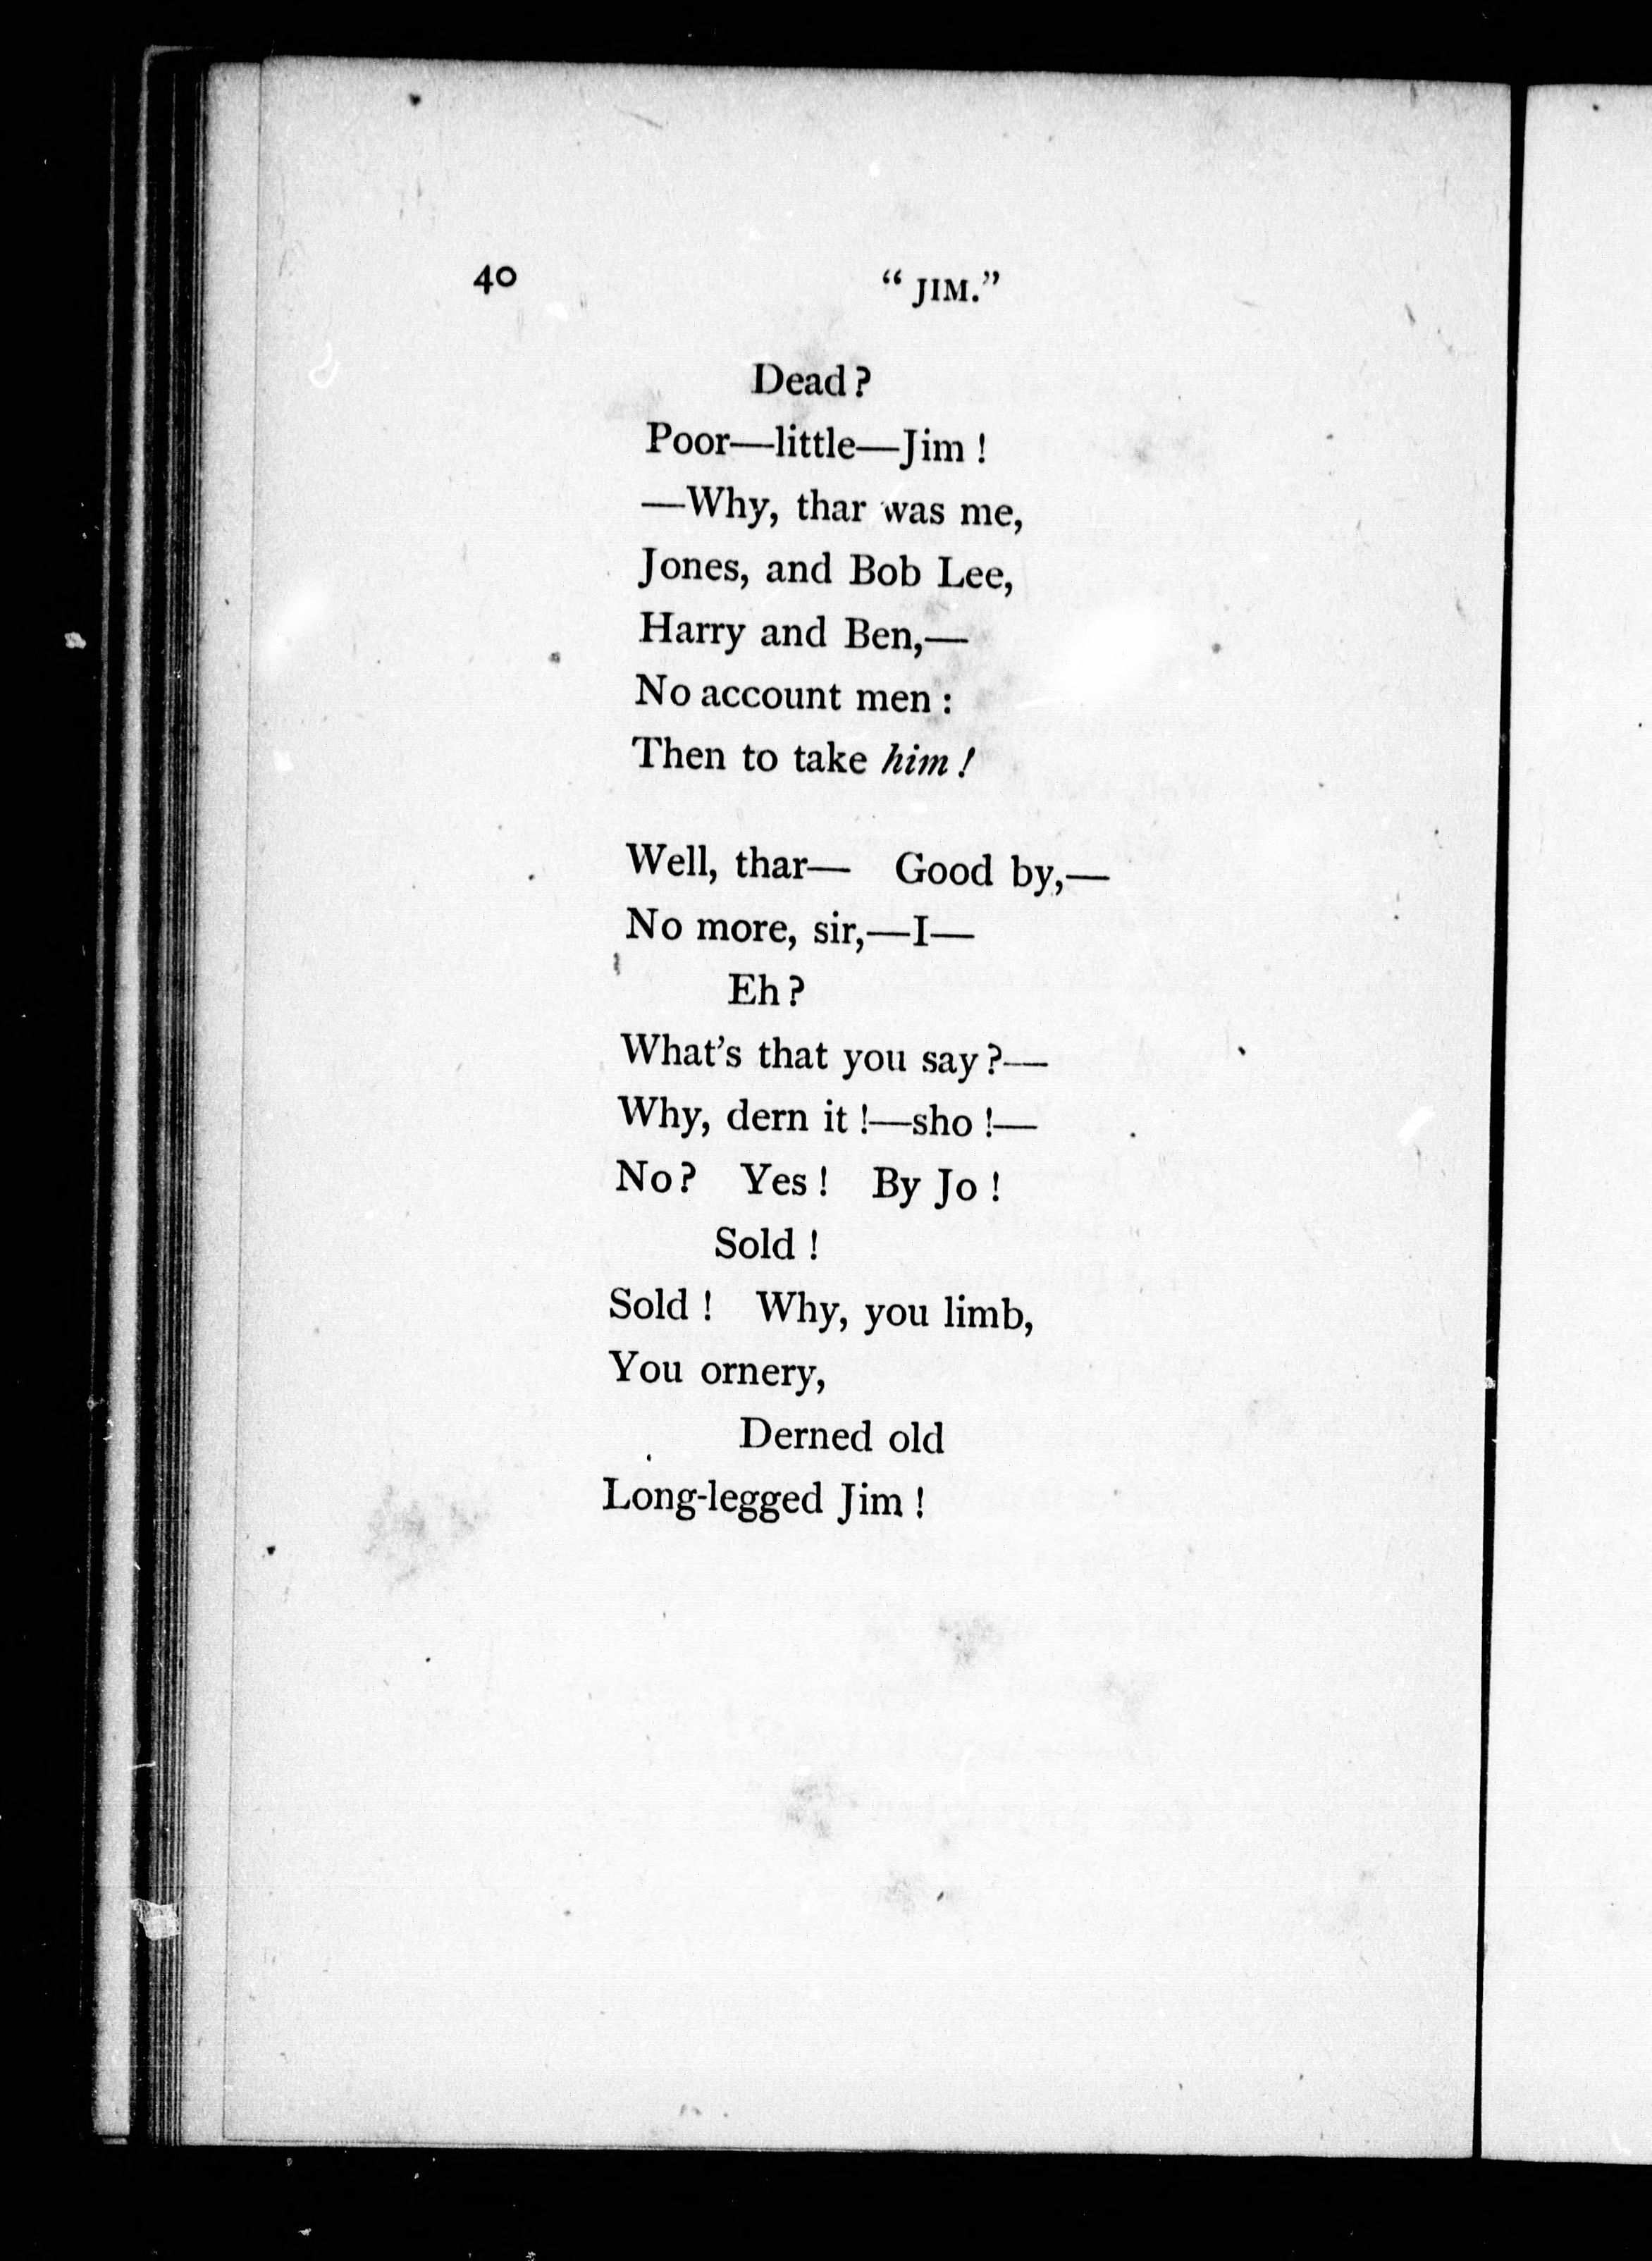 40 “ JIM.”
Dead?
Poor—little—Jim !
—Why, thar was me,
Jones, and Bob Lee,
Harry and Ben,—
No account men :
Then to take him !
Well, thar— Good by,—
No more, sir,—I—
Eh?
What’s that you say?—
Why, dern it !—sho !—
No? Yes! By Jo !
Sold !
Sold ! Why, you limb,
You ornery,
Derned old
Long-legged Jim !